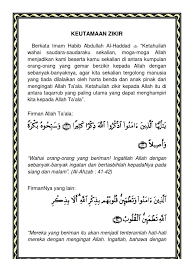 KEUTAMAAN ZIKIR
Berkata Imam Habib Abdullah Al-Haddad "Ketahuilah
wahai saudara-saudaraku sekalian, moga-moga Allah
menjadikan kami beserta kamu sekalian di antara kumpulan
orang-orang yang gemar berzikir kepada Allah dengan
sebanyak-banyaknya, agar kita sekalian tergolong manusia
yang tiada dilalaikan oleh harta dan benda serta anak dari
mengingati Allah Ta'ala. Ketahuilah zikir kepada Allah itu di
antara taqarrub yang paling utama yang dapat menghampiri
kita kepada Allah Ta'ala".
Firman Allah Ta'ala:
يَـٰٓأَيُّهَا ٱلَّذِينَ ءَامَنُوا۟ ٱذْكُرُوا۟ ٱللَّهَ ذِكْرًا كَثِيرًا ۝ وَسَبِّحُوهُ بُكْرَةً
وَأَصِيلًا ۝
"Wahai orang-orang yang beriman! Ingatlah Allah dengan
sebanyak-banyak ingatan dan bertasbihlah kepadaNya pada
siang dan malam". (Al-Ahzab : 41-42)
FirmanNya yang lain:
ٱلَّذِينَ ءَامَنُوا۟ وَتَطْمَئِنُّ قُلُوبُهُم بِذِكْرِ ٱللَّهِ ۗ أَلَا بِذِكْرِ
ٱللَّهِ تَطْمَئِنُّ ٱلْقُلُوبُ ۝
"Mereka yang beriman itu akan menjadi tenteramlah hati-hati
mereka dengan mengingati Allah. Ingatlah, bahawa dengan